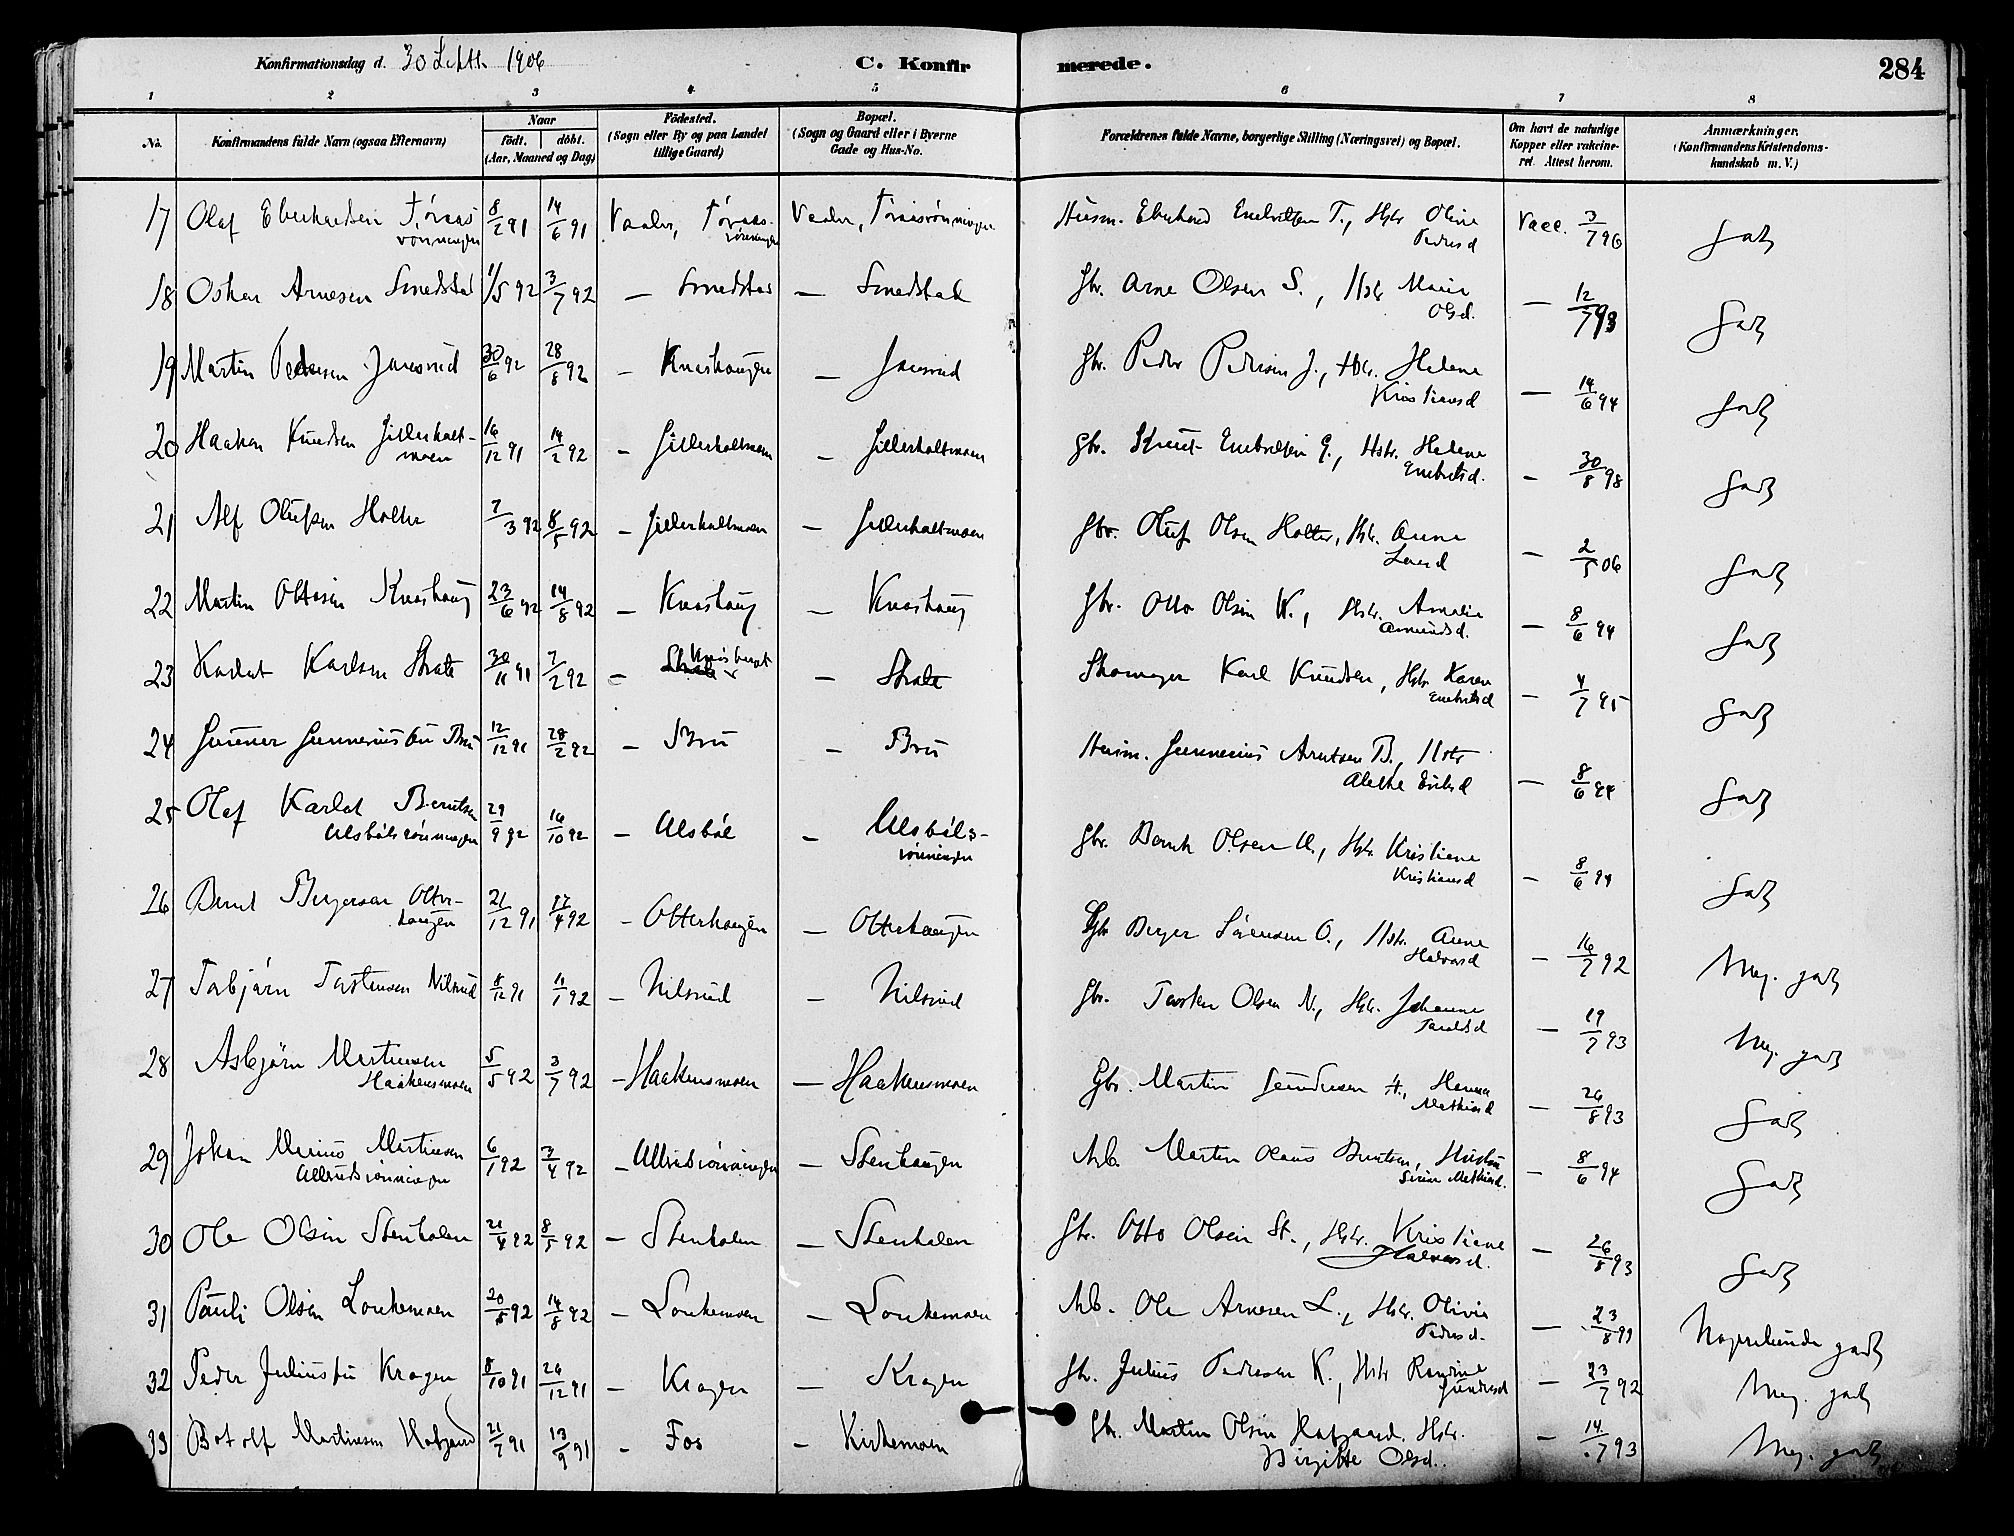 Konfirmationsdag d. 30 Septb. 1906
C. Konfirmerede.
284
1 2 3 4 5 6 7 8
No.
Konfirmandens fulde Navn (ogsaa Efternavn)
Naar
født. døbt.
(Aar, Maaned og Dag)
Fødested.
(Sogn eller By og paa Landet
tillige Gaard)
Bopæl.
(Sogn og Gaard eller i Byerne
Gade og Hus-No.
Forældrenes fulde Navne, borgerlige Stilling (Næringsvei) og Bopæl.
Om havt de naturlige
Kopper eller vakcine-
ret. Attest herom.
Anmærkninger.
(Konfirmandens Kristendoms-
kundskab m. V.)
17 Olaf Eberhardsen 8/2 91 14/6 91 Vaaler, Vaaler, Husm. Eberhard T., Hstr. Oline Pedersd Vacc. 3/7 96 godt
18 Oskar Arnesen Smedstad 1/5 92 3/7 92 — Smedstad — Smedstad Gbr. Arne Olsen S., Hstr Marie Olsd. — 12/7 93 godt
19 Martin Pedersen 30/6 92 28/8 92 — Knashaugen — Gbr. Peder Pedersen J., Hstr. Helene Kristiansd — 14/6 94 godt
20 Haaken Knudsen Gillerholt-
moen 16/12 91 14/2 92 — Gillerholtmoen — Gillerholtmoen Gbr. Knut Enebretsen G., Hstr. Helene Enebretsd. — 30/8 98 godt
21 Alf Olufsen Holter 7/3 92 8/5 92 — Gillerholtmoen — Gillerholtmoen Gbr. Oluf Olsen Holter, Hstr. Anne Larsd — 2/5 06 godt
22 Martin Ottesen Knashaug 23/6 92 14/8 92 — Knashaug — Knashaug Gbr. Otto Olsen K., Hstr. Amalie Amundsd. — 8/6 94 godt
23 Karlot Karlsen 30/11 91 7/2 92 — — Skomager Karl Knudsen, Hstr Karen Enebretsd — 4/7 95 godt
24 Gunnar Gunneriussen Bru 12/12 91 28/2 92 — Bru — Bru Husm. Gunnerius Arntsen B., Hstr Alethe Eriksd — 8/6 94 godt
25 Olaf Karlot Berntsen
Ulsbølsrønningen 29/9 92 16/10 92 — Ulsbøl — Ulsbøls-
rønningen Gbr. Bernt Olsen U., Hstr Kristiane Kristiansd — 8/6 94 godt
26 Bernt Birgersen Otter-
haugen 21/12 91 17/4 92 — Otterhaugen — Otterhaugen Gbr Birger Sørensen O., Hstr. Anne Halvorsd — 16/7 92 Meg. godt
27 Torbjørn Torstensen Nilsrud 8/12 91 11/1 92 — Nilsrud — Nilsrud Gbr. Torsten Olsen N., Hstr. Johanne — 19/7 93 Meg. godt
28 Asbjørn Martinsen
Haakensmoen 5/5 92 3/7 92 — Haakensmoen — Haakensmoen Gbr. Martin Gundersen H., Hanna Mathisd — 26/8 93 godt
29 Johan Marius Martinsen
Allrudsrønningen 6/1 92 3/4 92 — Allrudsrønningen — Stenhaugen Arb. Martin Olaus Berntsen, Hustru Sirine Mathisd. — 8/6 94 godt
30 Ole Olsen Stenhalen 21/4 92 8/5 92 — Stenhalen — Stenhalen Gbr. Otto Olsen St., Hstr. Kristiane Halvorsd. — 26/8 93 godt
31 Pauli Olsen Lonkemoen 20/5 92 14/8 92 — Lonkemoen — Lonkemoen Arb. Ole Arnesen L., Hstr. Olivia Pedersd. — 23/8 99 Nogenlunde godt
32 Peder Juliussen Kragen 8/10 91 26/12 91 — Kragen — Kragen Gbr. Julius Pedersen K., Hstr Randine Gundersd — 23/7 92 Meg. godt
33 Botolf Martinsen Hofgaard 21/7 91 13/9 91 — Fos — Kirkemoen Gbr. Martin Olsen Hofgaard. Hstr. Birgitte Olsd. — 14/7 93 Meg. godt